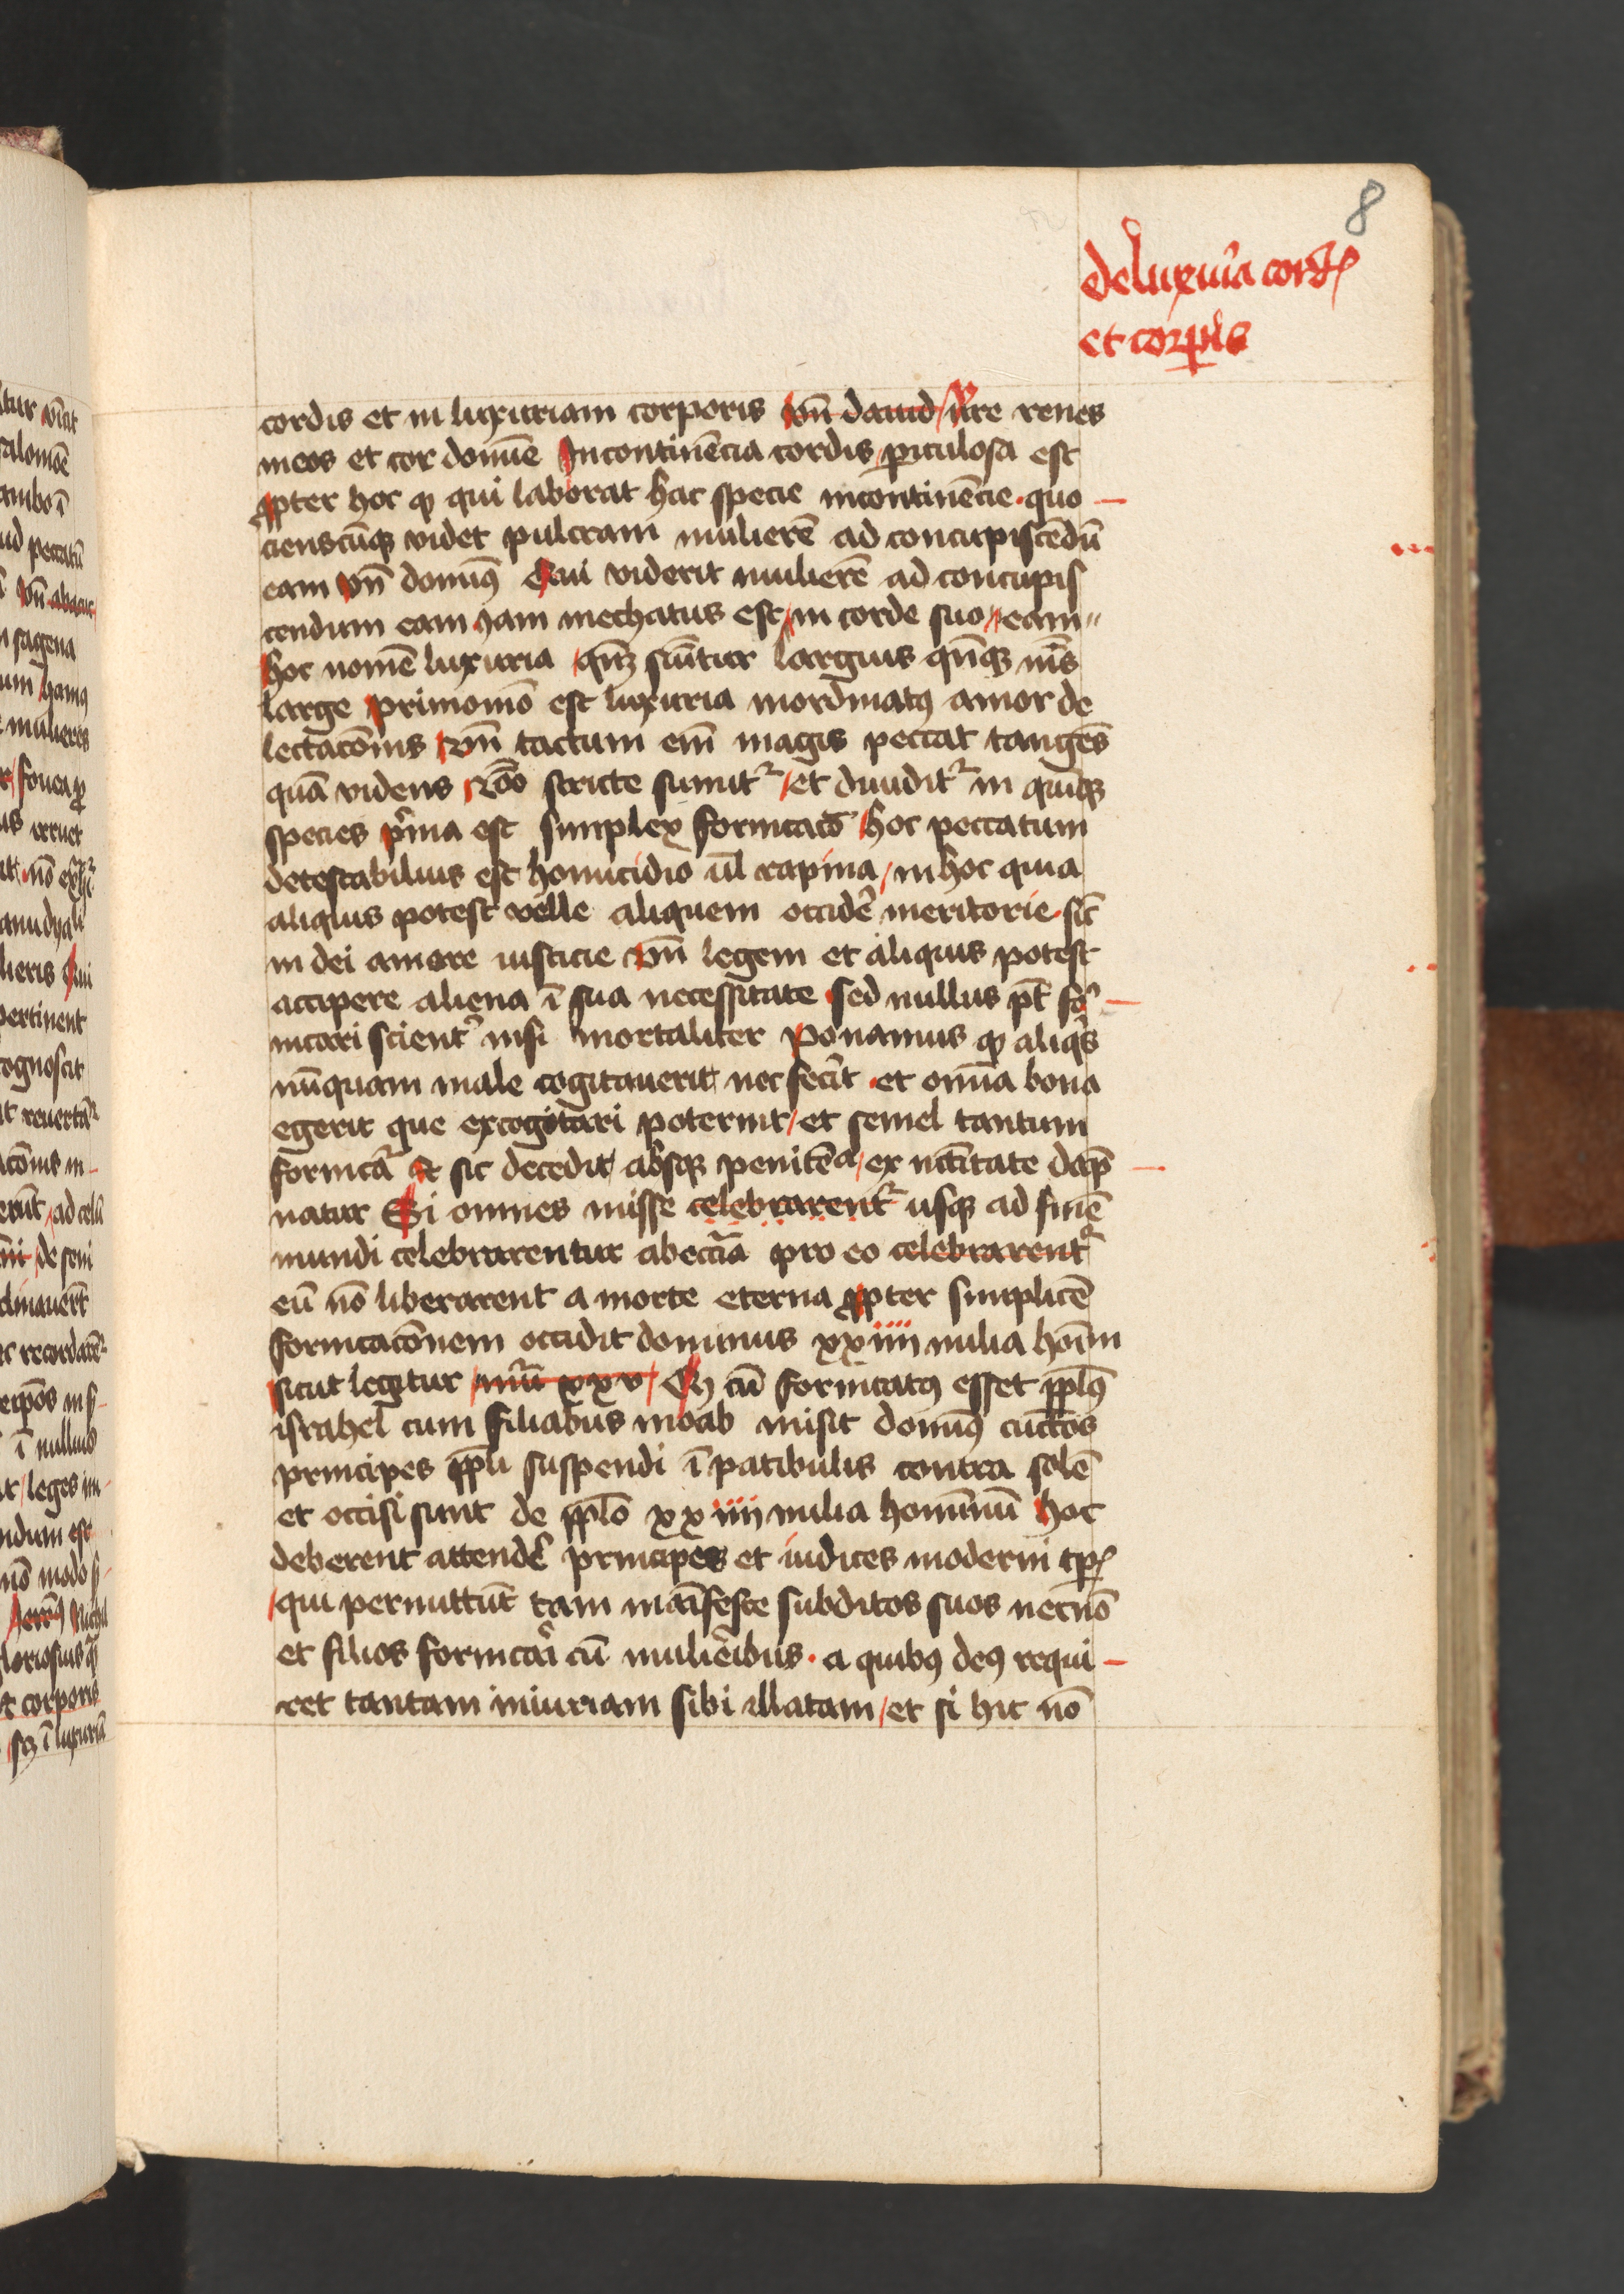 8
de luxuria cordꝭ
et corpīs
cordis et in luxuriam corporis vn̄ dauid vre renes
meos et cor domīe Incontinēcia cordis ꝑiculosa est
ꝓpter hoc ꝙ qui laborat hac specie incontinēcie · quo
cienscūqꝫ videt pulcram mulierē ad concupiscēdū
eam vn̄ domīꝰ Qui viderit mulierē ad concupis
cendum eam yam mechatus est in corde suo eam
hoc nomē luxuria qn̄qꝫ sūitur largius qn̄qꝫ mīꝰ
large primomō est luxuria inordinatꝰ amor de
lectacōnis vn̄ tactum em̄ magis peccat tangēs
quā videns 2ōo stricte sumit᷑ et diuidit᷑ in quīqꝫ
species pͥma est simplex fornicatō hoc peccatum
detestabilius est homicidio ul̄ rapina in hoc quia
aliquis potest velle aliquem occidē meritorie · sic̄
in dei amore iusticie vn̄ legem et aliquis potest
accipere aliena ī sua necessitate sed nullus pt̄ for
nicari scient᷑ nisi mortaliter Ponamus ꝙ aliqͥs
nūquam male cogitauerit nec fecīt · et om̄ia bona
egerit que excogitari poterint et semel tantum
fornicā̄ et sic decedit absqꝫ penitēa ex nc̄citate dāp
natur Si omnes misse celebrarent᷑ usqꝫ ad finē
mundi celebrarentur ab eccīa pro eo celebrarent᷑
eū nō liberarent a morte eterna ꝓpter simplicē
fornicacōnem occidit dominus xxiiii milia hoīm
sicut legitur nūī xxv Qꝫ cū fornicatꝰ esset ppl̄ꝰ
israhel cum filiabus moab misit domīꝰ cūctos
principes ppl̄i suspendi ī patibulis contra solē
et occisi sunt de ppl̄o xxiiii milia homīnū hoc
deberent attendē principes et iudices moderni tꝑꝭ
qui permittūt tam māifeste subditos suos necnō
et filios fornicāi cū muliēibus · a quibꝰ deꝰ requi
ret tantam iniuriam sibi illatam et si hic nō